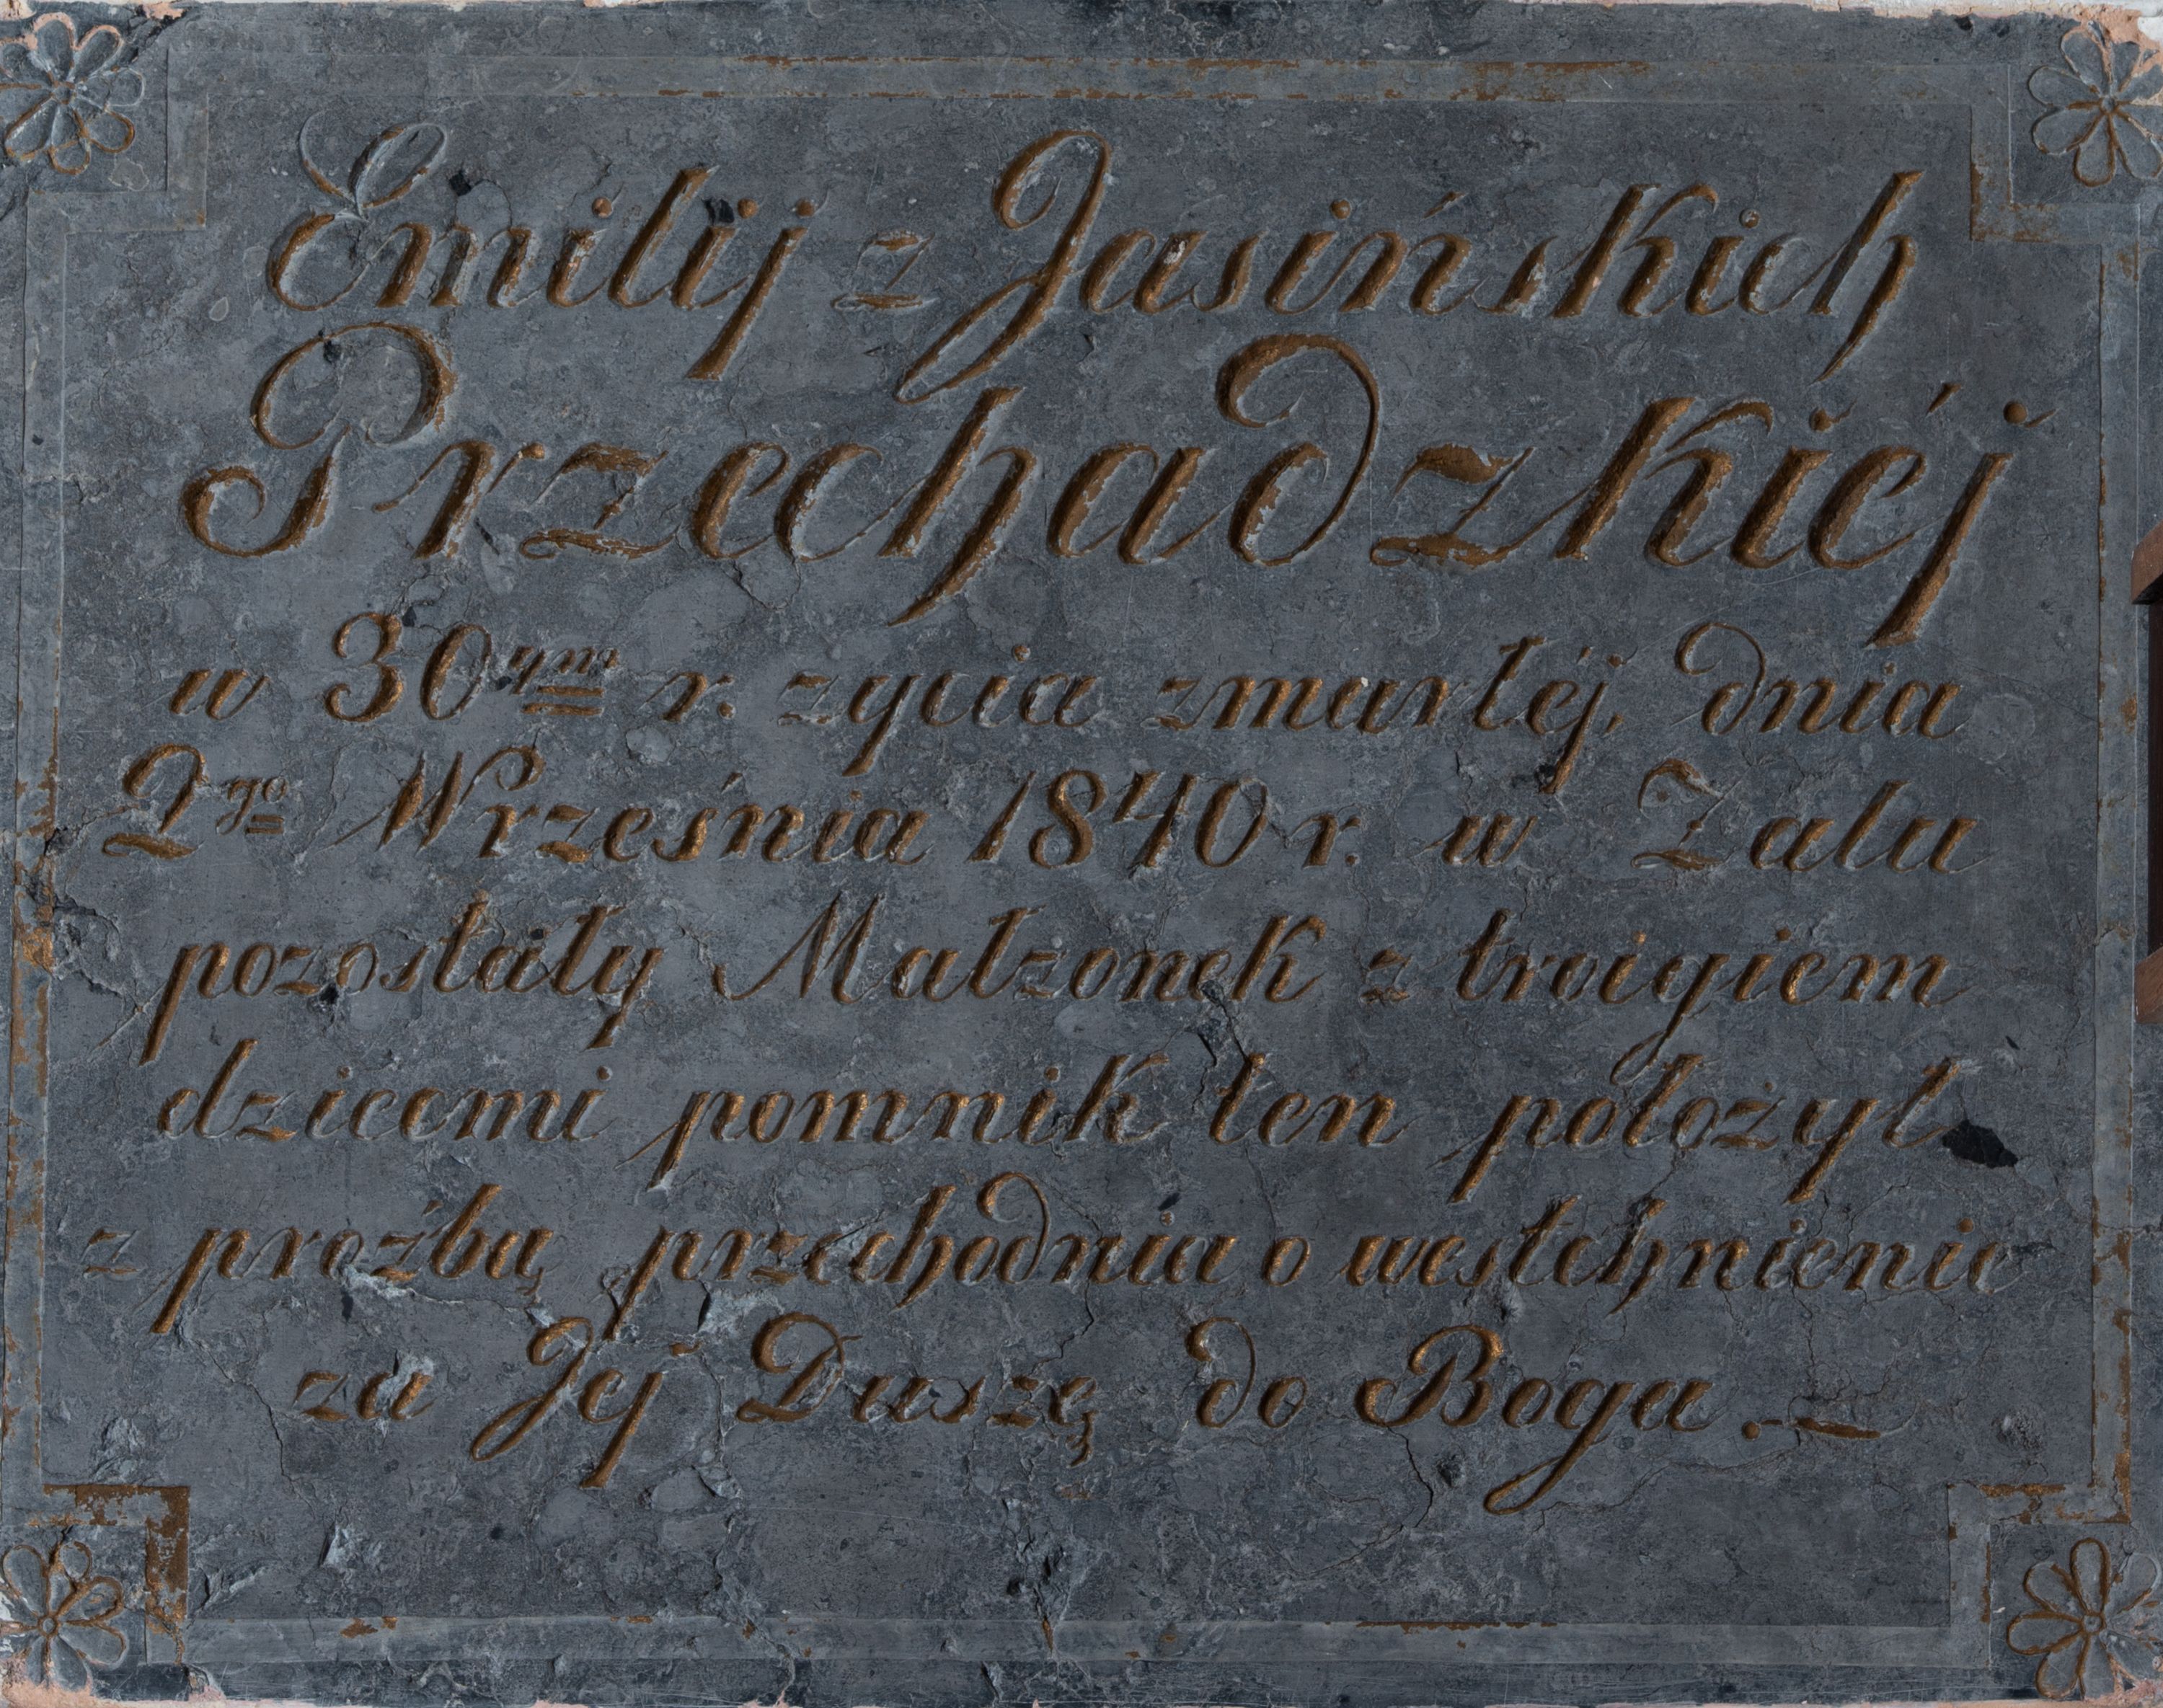 Emilij z Jasińskich
Przechadzkiéj
w 30ym r. zycia zmarłéj, dnia
2go Września 1840 r. w Zalu
pozostały Małzonek z troigiem
dziecmi pomnik ten położył
z proźbą przechodnia o westchnienie
za Jej Duszę do Boga. —